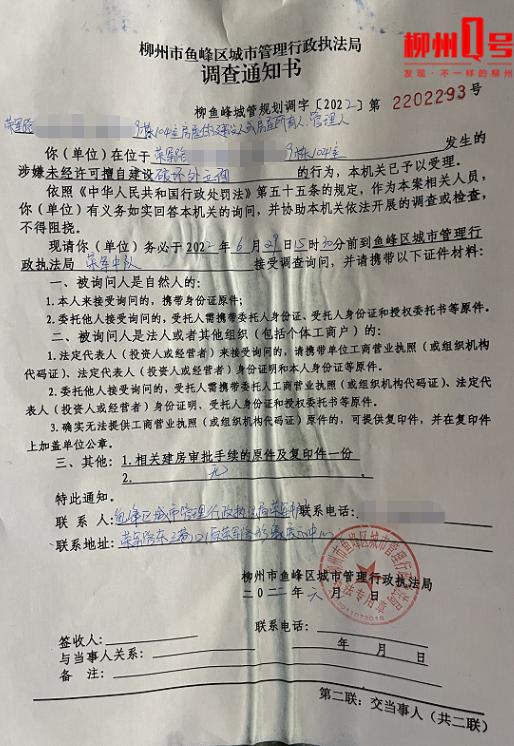 柳州Q号
发现·不一样的柳州
柳州市鱼峰区城市管理行政执法局
调查通知书
柳鱼峰城管规划调字〔2022〕第 2202293号
荣军路 9栋104主房屋 人或房屋所有人、管理人
你（单位）在位于 荣军路 9栋104主 发生的
涉嫌未经许可擅自建设 破坏外立面 的行为，本机关已予以受理。
依照《中华人民共和国行政处罚法》第五十五条的规定，作为本案相关人员，
你（单位）有义务如实回答本机关的询问，并协助本机关依法开展的调查或检查，
不得阻挠。
现请你（单位）务必于 2022 年 6 月 29 日 15 时 30 分前到鱼峰区城市管理行
政执法局 荣军中队 接受调查询问，并请携带以下证件材料：
一、被询问人是自然人的：
1.本人来接受询问的，携带身份证原件；
2.委托他人接受询问的，受托人需携带委托人身份证、受托人身份证和授权委托书等原件。
二、被询问人是法人或者其他组织（包括个体工商户）的：
1.法定代表人（投资人或经营者）来接受询问的，请携带单位工商营业执照（或组织机构
代码证）、法定代表人（投资人或经营者）身份证明和本人身份证等原件。
2.委托他人接受询问的，受托人需携带委托人工商营业执照（或组织机构代码证）、法定代
表人（投资人或经营者）身份证明、受托人身份证和授权委托书等原件。
3.确实无法提供工商营业执照（或组织机构代码证）原件的，可提供复印件，并在复印件
上加盖单位公章。
三、其他：1.相关建房审批手续的原件及复印件一份
2. 无
特此通知。
联 系 人：鱼峰区城市管理行政执法局荣军中队 联系电话：
联系地址：荣军路东三巷121号荣军路
柳州市鱼峰区城市管理行政执法局
二〇二二年六月 日
柳州市鱼峰区城市管理行政执法局
执法专用章
联系电话：
签收人： 年 月 日
与当事人关系：
备 注：
第二联：交当事人（共二联）